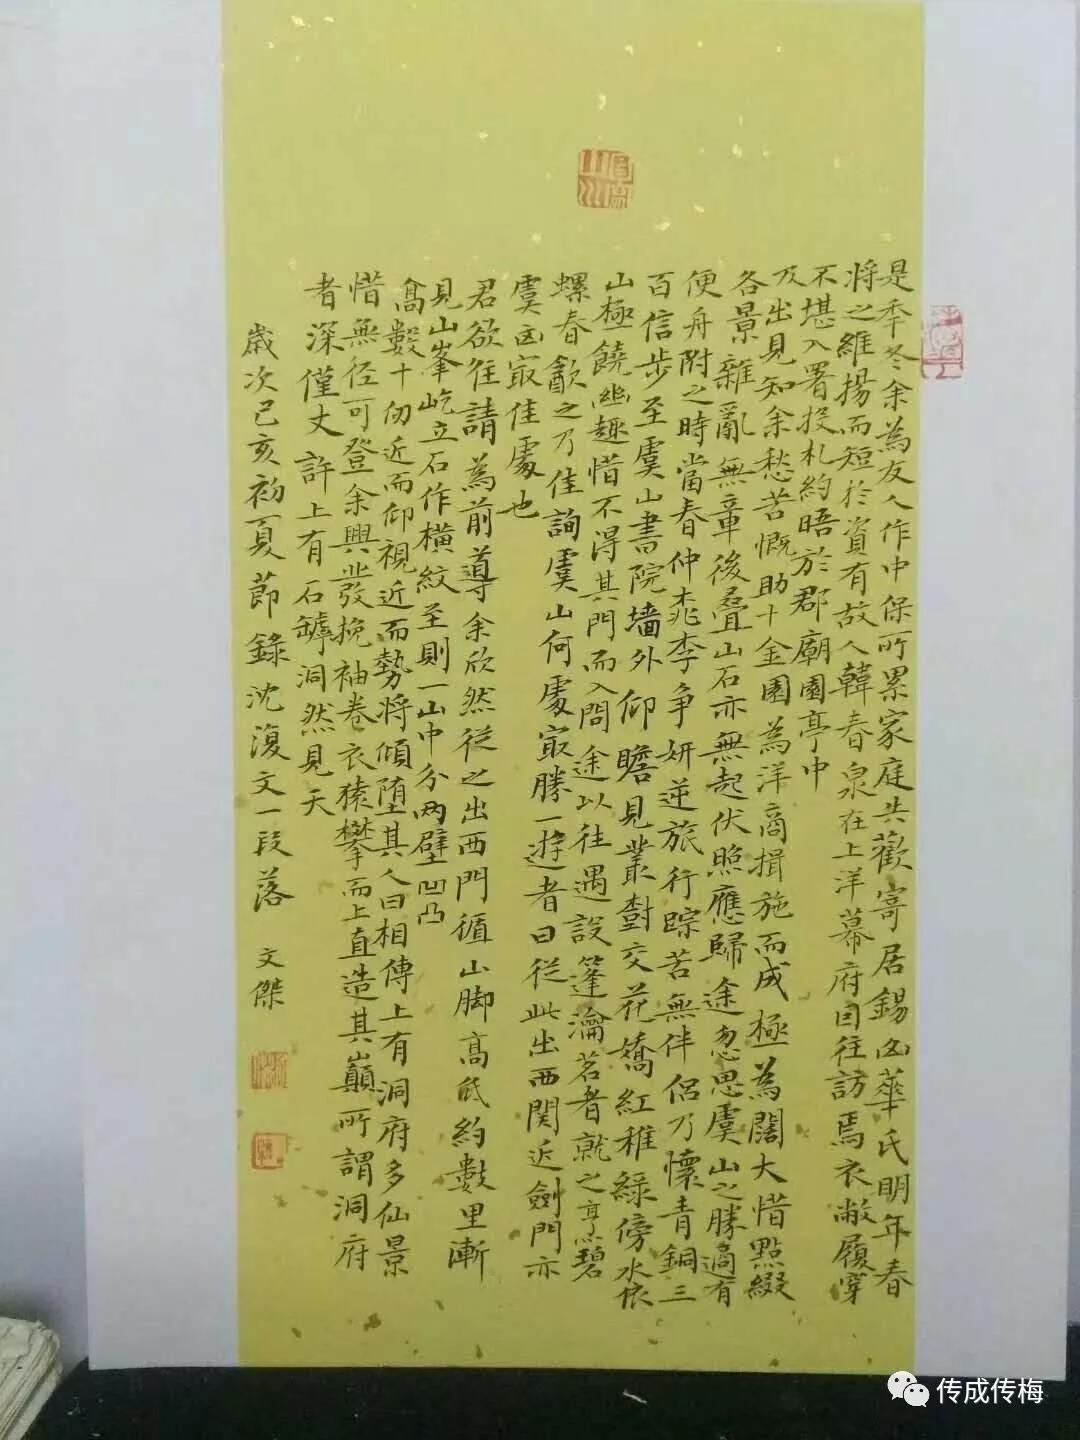 是年冬余為友人作中保所累家庭失歡寄居錫山華氏明年春
將之維揚而短於資有故人韓春泉在上洋幕府因往訪焉衣敝履穿
不堪入署投札約晤於郡廟園亭中
及出見知余愁苦慨助十金園為洋商捐施而成極為闊大惜點綴
各景雜亂無章後疊山石亦無起伏照應歸途忽思虞山之勝適有
便舟附之時當春仲桃李爭妍逆旅行踪苦無伴侶乃懷青銅三
百信步至虞山書院墻外仰瞻見叢樹交花嬌紅稚綠傍水依
山極饒幽趣惜不得其門而入問途以往遇設篷瀹茗者就之烹碧
螺春飲之乃佳詢虞山何處最勝一遊者曰從此出西関近劍門亦
虞山最佳處也
君欲往請為前導余欣然從之出西門循山脚高低約數里漸
見山峯屹立石作橫紋至則一山中分兩壁凹凸
高數十仞近而仰視近而勢將傾墮其人曰相傳上有洞府多仙景
惜無徑可登余興發挽袖卷衣猿攀而上直造其巔所謂洞府
者深僅丈許上有石罅洞然見天
歲次己亥初夏節錄沈復文一段落 文傑
传成传梅